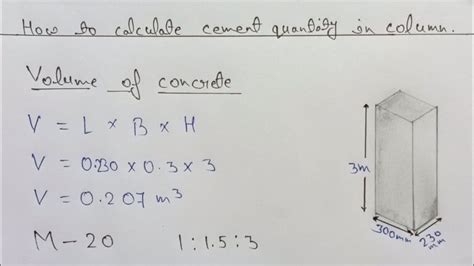 How to calculate cement quantity in column.
Volume of concrete
V = L × B × H
V = 0.230 × 0.3 × 3
V = 0.207 m³
M - 20 1 : 1.5 : 3
3m
300mm
230 mm